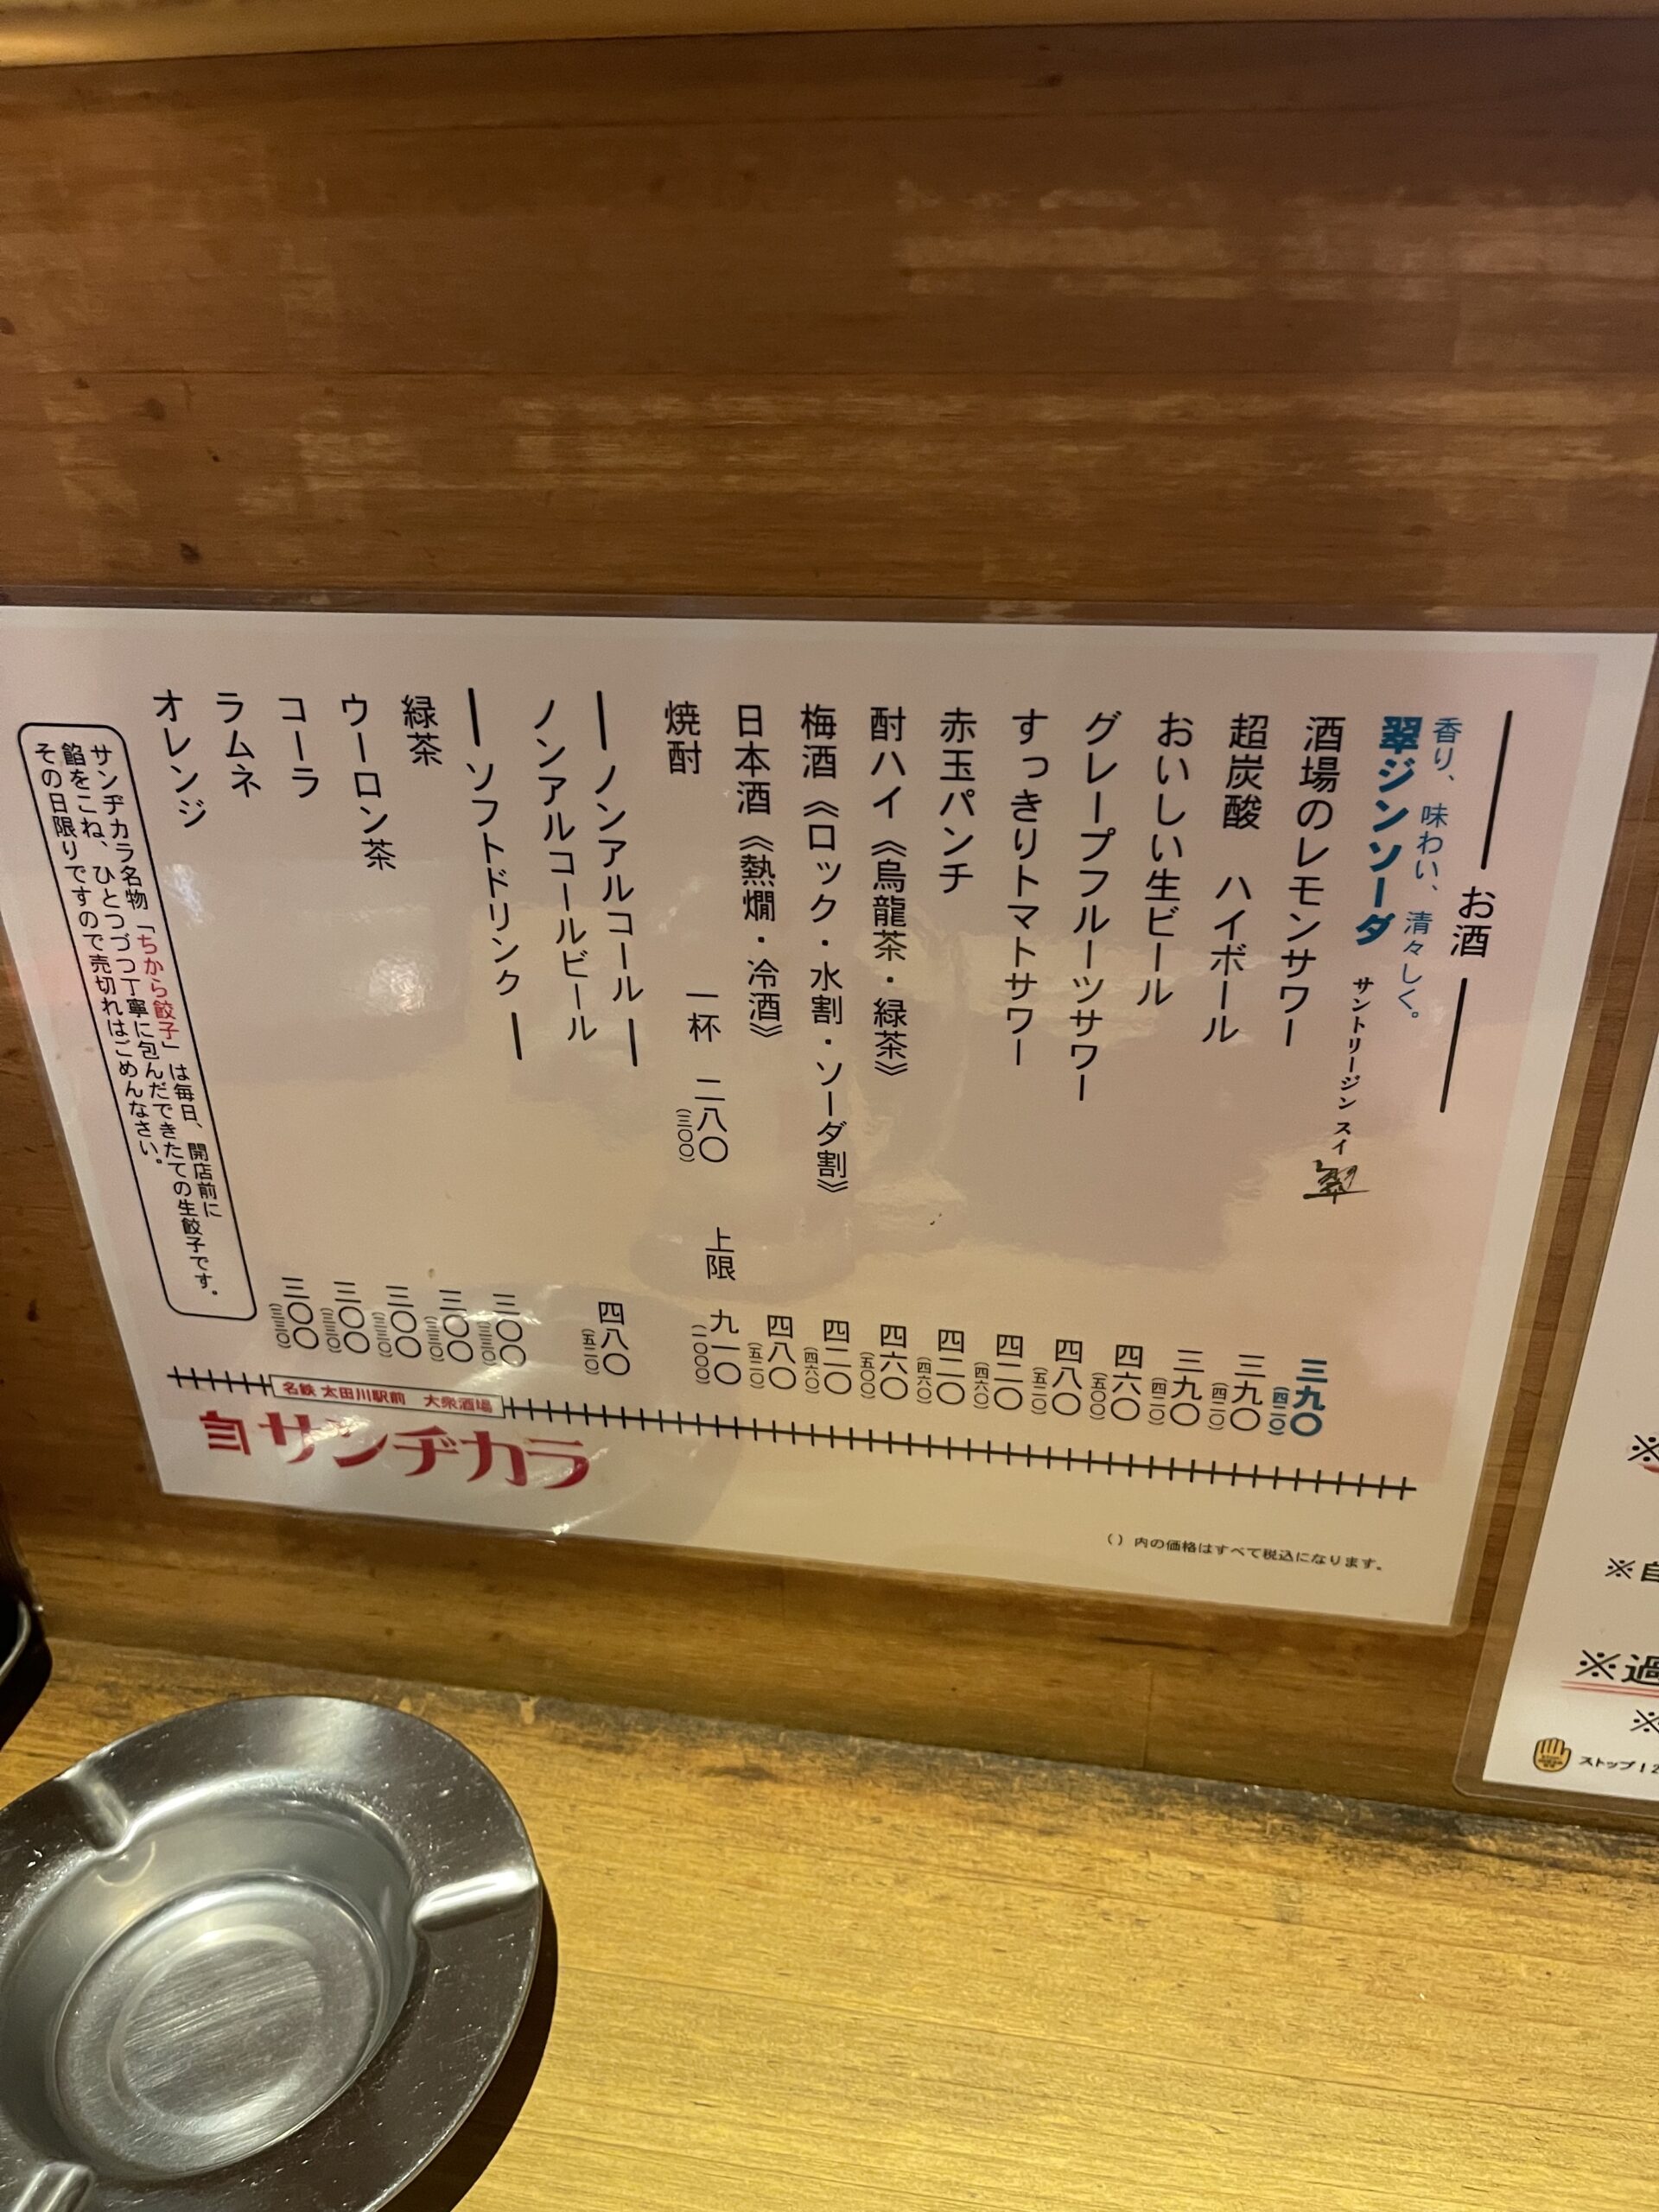 お酒
香り、味わい、清々しく。
翠ジンソーダ サントリージン スイ 翠 三九〇 (四二〇)
酒場のレモンサワー 三九〇 (四二〇)
超炭酸 ハイボール 三九〇 (四二〇)
おいしい生ビール 四六〇 (五〇〇)
グレープフルーツサワー 四八〇 (五二〇)
すっきりトマトサワー 四二〇 (四六〇)
赤玉パンチ 四二〇 (四六〇)
酎ハイ《烏龍茶・緑茶》 四六〇 (五〇〇)
梅酒《ロック・水割・ソーダ割》 四二〇 (四六〇)
日本酒《熱燗・冷酒》 四八〇 (五二〇)
焼酎 一杯 二八〇 (三〇〇) 上限 九一〇 (一〇〇〇)
ノンアルコール
ノンアルコールビール 四八〇 (五二〇)
ソフトドリンク
緑茶 三〇〇 (三三〇)
ウーロン茶 三〇〇 (三三〇)
コーラ 三〇〇 (三三〇)
ラムネ 三〇〇 (三三〇)
オレンジ 三〇〇 (三三〇)
サンヂカラ名物「ちから餃子」は毎日、開店前に
餡をこね、ひとつづつ丁寧に包んだできたての生餃子です。
その日限りですので売切れはごめんなさい。
名鉄 太田川駅前 大衆酒場
サンヂカラ
( ) 内の価格はすべて税込になります。
※
※自
※過
※
ストップ！2